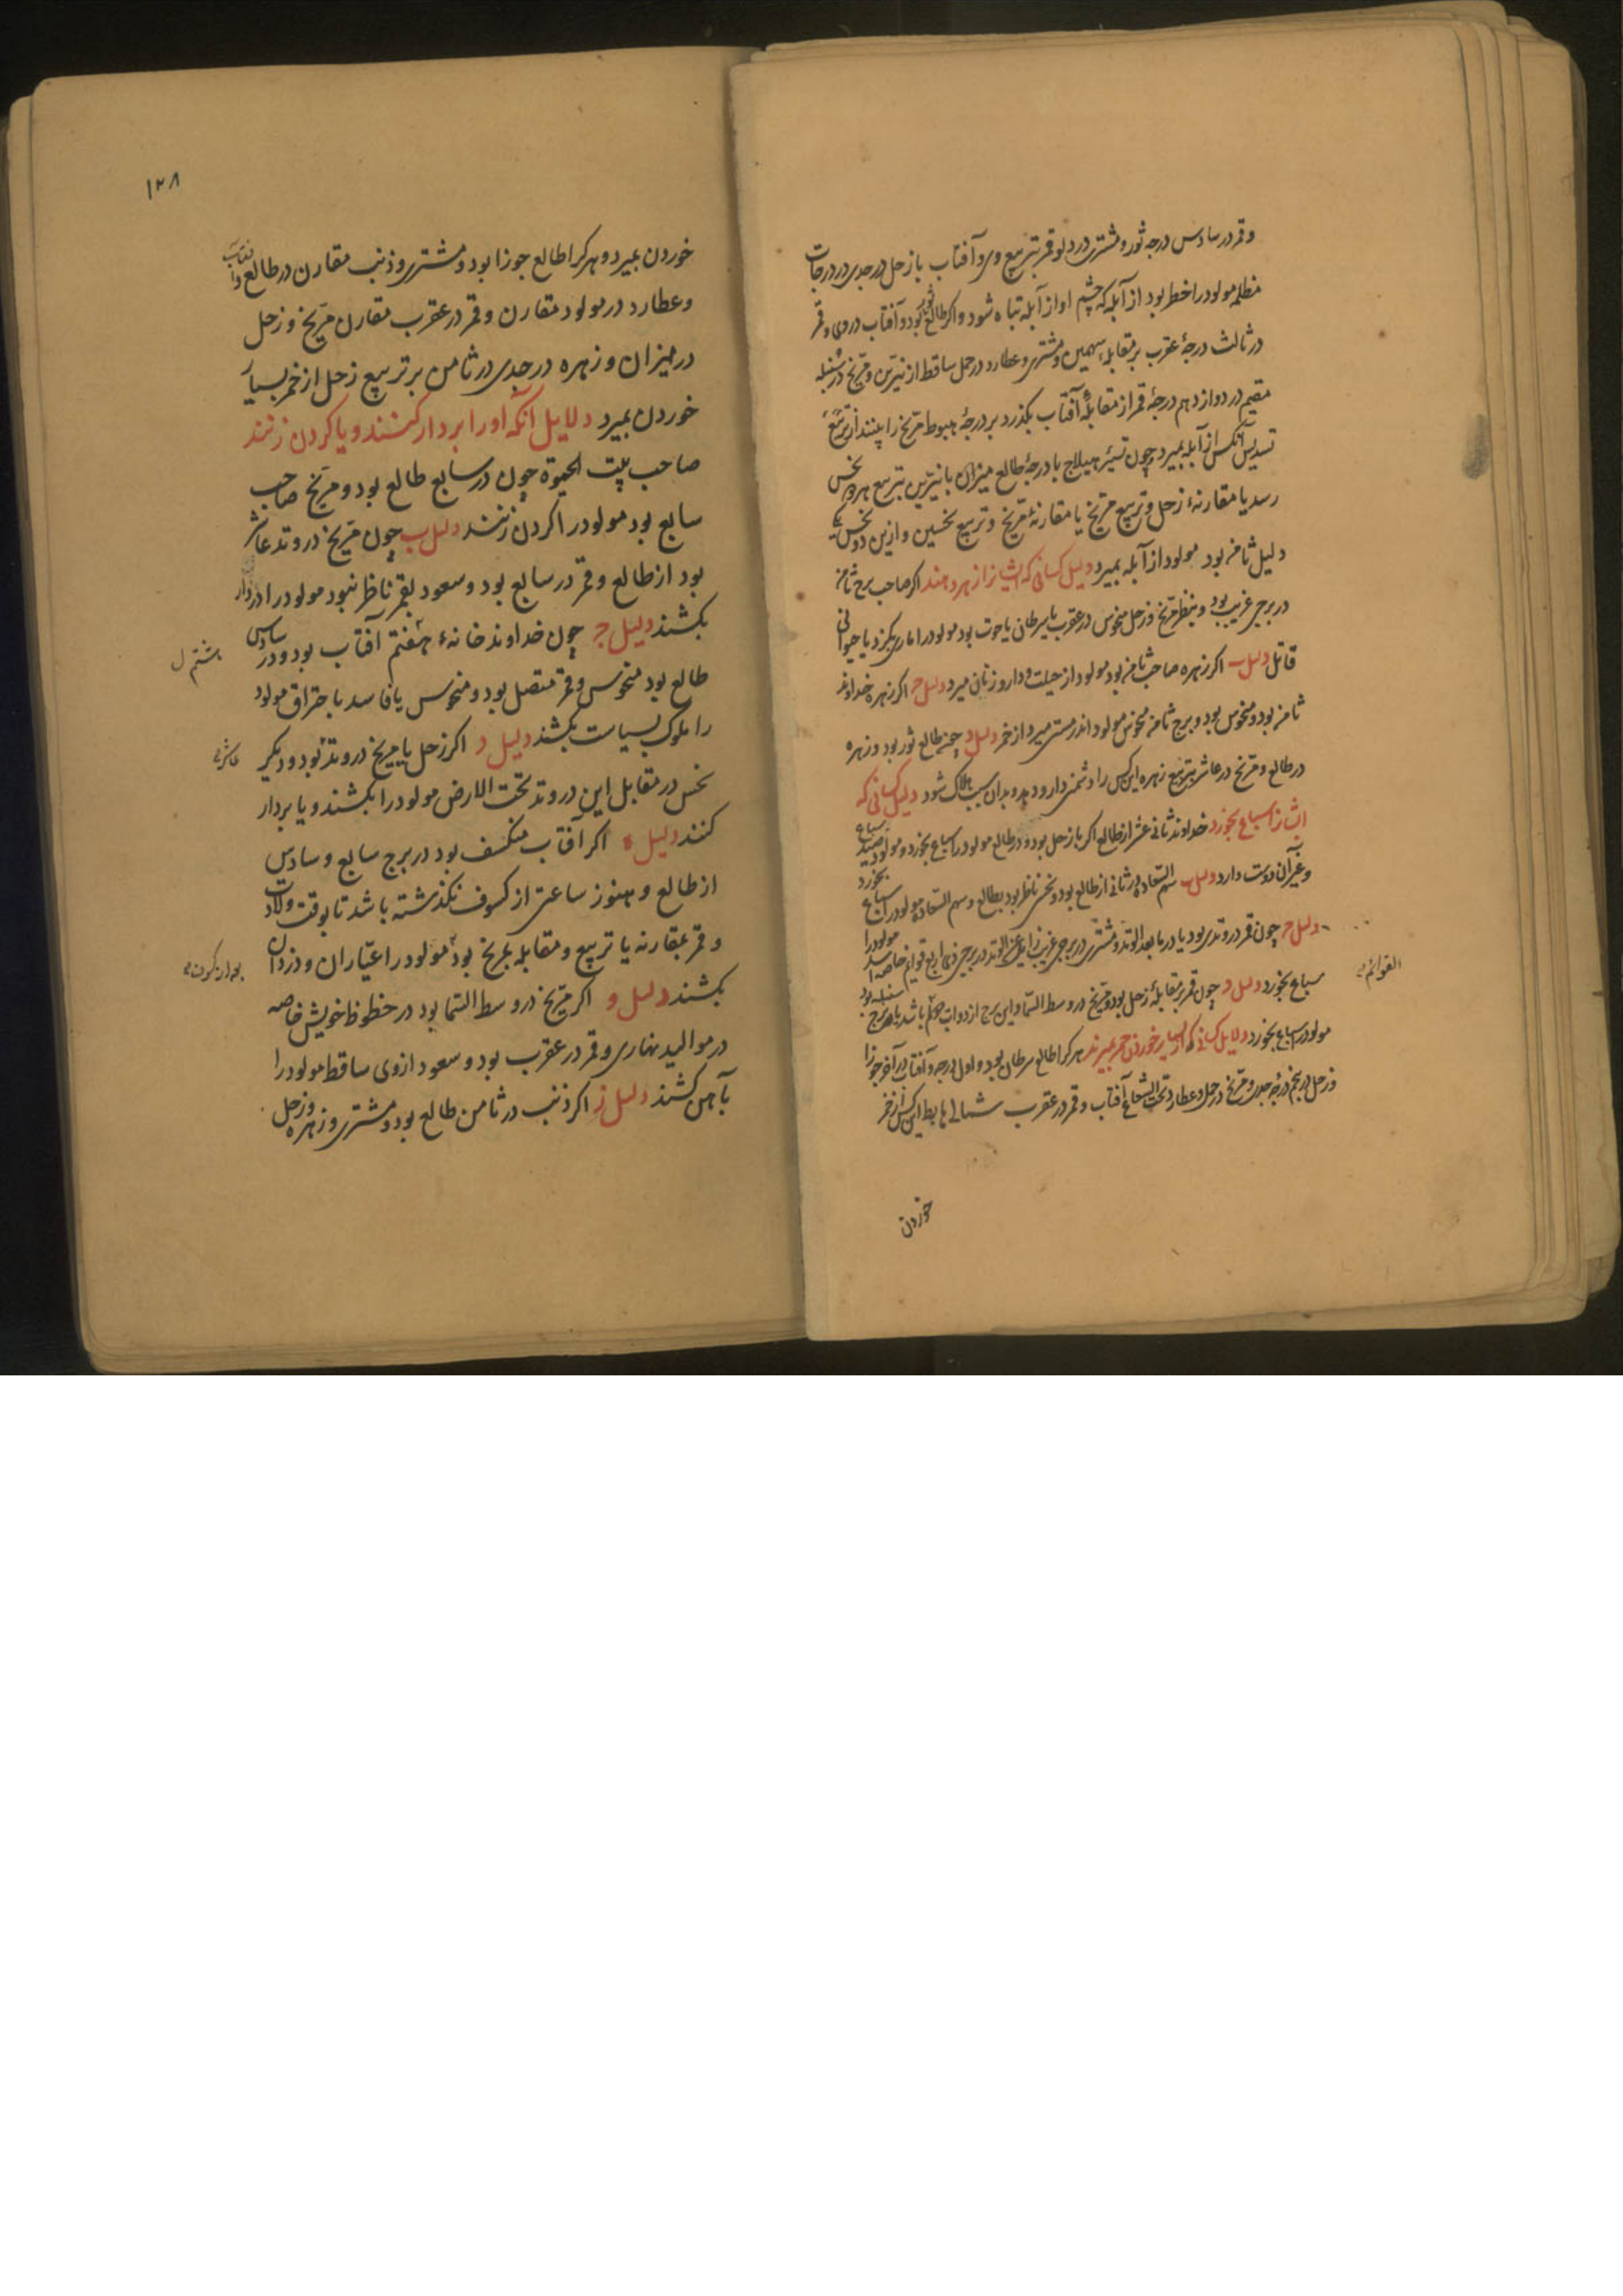 وقمر در سادس درجه ثور و مشتری در دلو قمر بتربیع وی و آفتاب با زحل در جدی در درجات
مظلمه مولود را خطر بود از آبله که چشم او از آبله تباه شود و اکر طالع ثور بود و آفتاب در وی و قمر
در ثالث درجهٔ عقرب بر مقابلهٔ سهمین و مشتری و عطارد در حمل ساقط از نیّرین و مرّیخ در سنبله
مقیم در دوازدهم درجهٔ قمر از مقابلهٔ آفتاب بکذرد بر درجهٔ هبوط مرّیخ را بینند از تربیع
تسدیس آنکس از آبله بمیرد و چون تسیّر هیلاج با درجهٔ طالع میزان با نیّرین بتربیع هر دو نحس
رسد یا مقارنهٔ زحل و تربیع مرّیخ یا مقارنهٔ مرّیخ و تربیع نحسین و ازین دو نحس یکی
دلیل ثامنه بود مولود از آبله بمیرد دلیل کسانی که ایشانرا زهر دهند اکر صاحب برج ثامنه
در برج غریب بود و بنظر مرّیخ و زحل منحوس در عقرب یا سرطان یا حوت بود مولود را ماری بکزد یا حیوانی
قاتل دلیل ب اکر زهره صاحب ثامنه بود مولود از حیلت و داروی زنان میرد دلیل ج اکر زهره خداوند
ثامنه بود و منحوس بود و برج ثامنه منحوس مولود اندر مستی میرد از خمر دلیل د چون طالع ثور بود و زهره
در طالع و مرّیخ در عاشر بتربیع زهره این کس را دشمن دارو دهد و بدان سبب هلاک شود دلیل کسانی که
ایشانرا سباع بخورد خداوند ثانی عشر از طالع اکر با زحل بود و در طالع مولود را سباع بخورد و مولود صید سباع
و غیر آن دوست دارد دلیل ب سهم السّعاده در ثانی از طالع بود و نحس ناظر بود بطالع و سهم السّعاده مولود را سباع بخورد
دلیل ج چون قمر در وتدی بود یا در مابعد الوتد و مشتری در برجی غریب زایل عن الوتد در برجی ذی اربع قوایم خاصه اسد مولود را
القوائم
سباع بخورد دلیل د چون قمر بمقابلهٔ زحل بود و مرّیخ در وسط السّما و این برج از ذوات باشد یا برج سنبله بود
مولود را سباع بخورد دلایل کسانی که از بسیار خوردن خمر بمیرند هر کرا طالع سرطان بود و اول درجه و آفتاب در آخر جوزا
و زحل در پنجم درجه جدی و مرّیخ در حمل و عطارد تحت الشعاع آفتاب و قمر در عقرب شمالی هابط این کس از خمر
خوردن
۱۲۸
خوردن بمیرد و هر کرا طالع جوزا بود و مشتری و ذنب مقارن در طالع و آفتاب
و عطارد در مولود مقارن و قمر در عقرب مقارن مرّیخ و زحل
در میزان و زهره در جدی در ثامن بر تربیع زحل از خمر بسیار
خوردن بمیرد دلایل آنکه او را بر دار کشند و یا کردن زنند
صاحب بیت الحیوة چون در سابع طالع بود و مرّیخ صاحب
سابع بود مولود را کردن زنند دلیل ب چون مرّیخ در وتد عاشر
بود از طالع و قمر در سابع بود و سعود بقمر ناظر نبود مولود را بر دار
بکشند دلیل ج چون خداوند خانهٔ هفتم آفتاب بود و در سادس
هشتم ل
طالع بود منحوس و قمر متصل بود و منحوس یا فاسد باحتراق مولود
را ملوک بسیاست بکشند دلیل د اکر زحل یا مریخ در وتد بود و دیکر
عاشر
نحس در مقابل این در وتد تحت الارض مولود را بکشند و یا بردار
کنند دلیل ه اکر آفتاب منکسف بود در برج سابع و سادس
از طالع و هنوز ساعتی از کسوف نکذشته باشد تا بوقت ولادت
و قمر بمقارنه یا تربیع و مقابله بمریخ بود مولود را عیّاران و دزدان
بکشند دلیل و اکر مرّیخ در وسط السّما بود در حظوظ خویش خاصه
در موالید نهاری و قمر در عقرب بود و سعود از وی ساقط مولود را
بآهن کشند دلیل ز اکر ذنب در ثامن طالع بود و مشتری و زهره و زحل